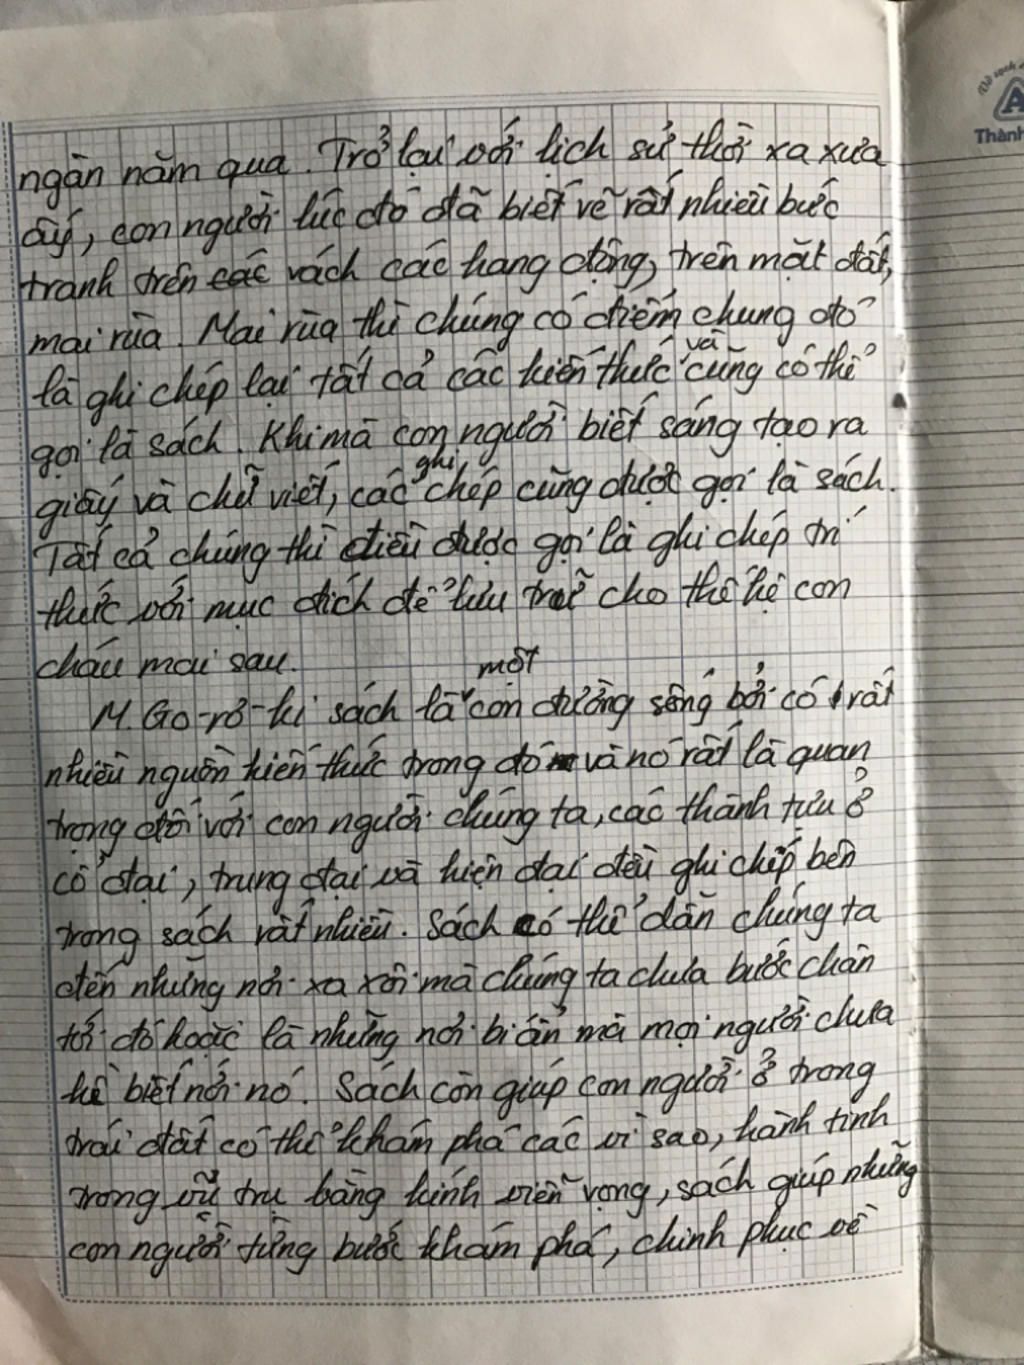 ngàn năm qua. Trở lại với lịch sử thời xa xưa
ấy, con người lúc đó đã biết vẽ rất nhiều bức
tranh trên các vách các hang động, trên mặt đất,
mai rùa. Mai rùa thì chúng có điểm chung đó
là ghi chép lại tất cả các kiến thức và cũng có thể
gọi là sách. Khi mà con người biết sáng tạo ra
giấy và chữ viết, các ghi chép cũng được gọi là sách.
Tất cả chúng thì điều được gọi là ghi chép tri
thức với mục đích để lưu trữ cho thế hệ con
cháu mai sau.
M. Go-rơ-ki sách là một con đường sống bởi có rất
nhiều nguồn kiến thức trong đó và nó rất là quan
trọng đối với con người chúng ta, các thành tựu ở
cổ đại, trung đại và hiện đại đều ghi chép bên
trong sách rất nhiều. Sách có thể dẫn chúng ta
đến những nơi xa xôi mà chúng ta chưa bước chân
tới đó hoặc là những nơi bí ẩn mà mọi người chưa
hề biết nơi nó. Sách còn giúp con người ở trong
trái đất có thể khám phá các vì sao, hành tinh
trong vũ trụ bằng kính viễn vọng, sách giúp những
con người từng bước khám phá, chinh phục về
Vở sạch
Thành